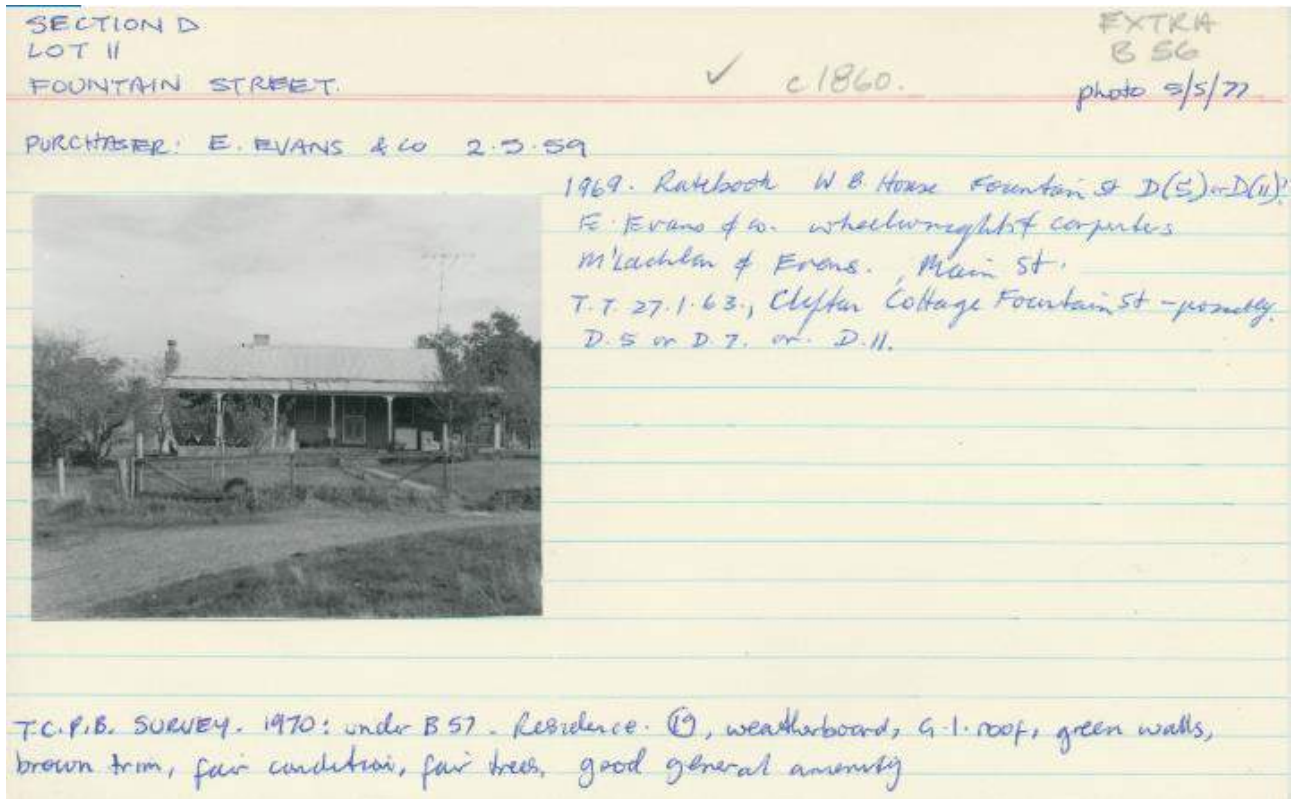 SECTION D
LOT 11
FOUNTAIN STREET.
EXTRA
B 56
✓ c1860.
photo 5/5/77
PURCHASER: E. EVANS & CO 2.5.59
1969. Ratebook W B. House Fountain St D(5) or D(11)?
E. Evans & Co. wheelwrights & carpenters
M'Lachlan & Evans., Main St.
T.T. 27.1.63., Clifton Cottage Fountain St - possibly.
D.5 or D.7. or D.11.
T.C.P.B. SURVEY. 1970: under B 57. Residence. 19, weatherboard, G.I. roof, green walls,
brown trim, fair condition, fair trees, good general amenity